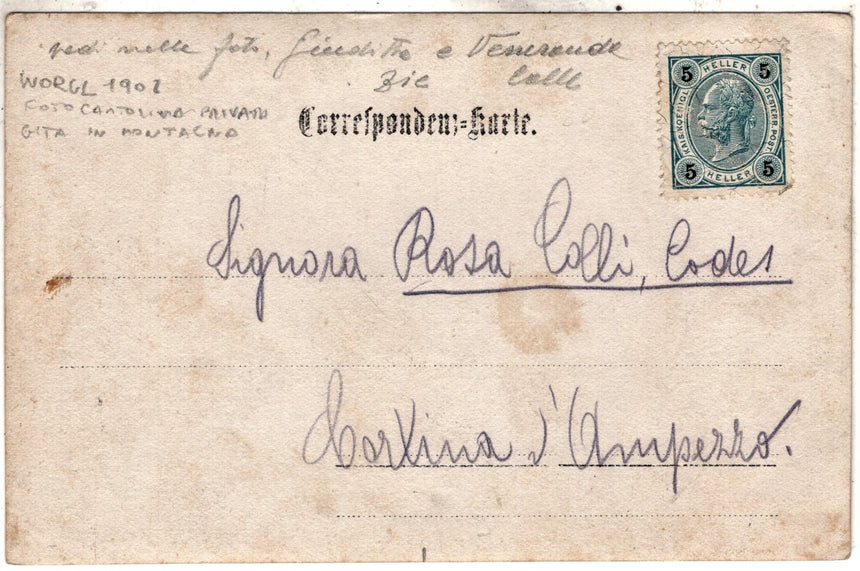 vedi nelle foto, Giuditta e Veneranda
Zie Colle
WORGL 1902
FOTO CARTOLINA PRIVATA
GITA IN MONTAGNA
Correspondenz=Karte.
5 HELLER 5
KAIS. KOENIGL. OESTERR. POST.
5 HELLER 5
Signora Rosa Colli, Codes
Cortina d'Ampezzo.